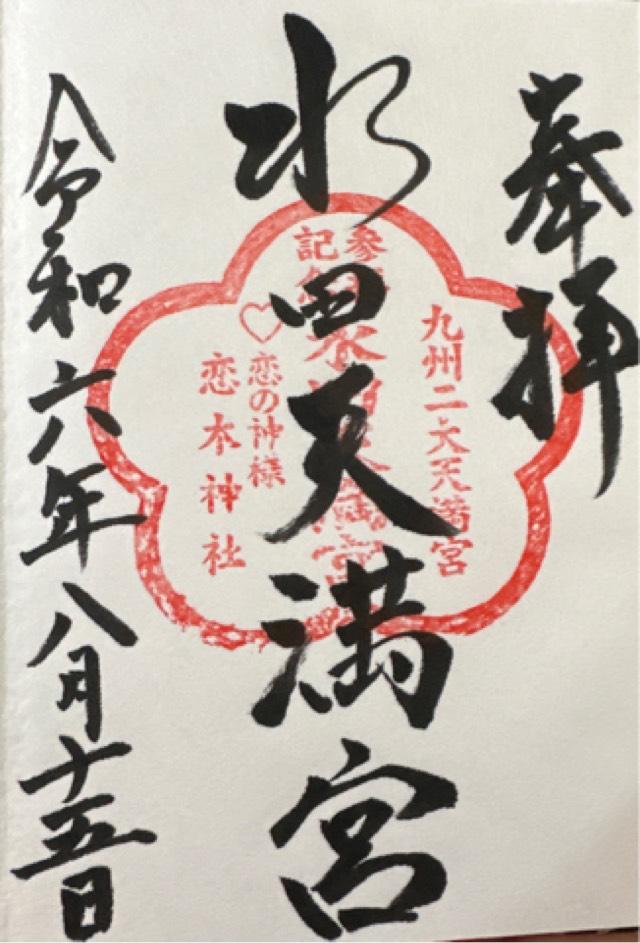 奉拝
九州二大天満宮
参拝
記念
水田天満宮
恋の神様
恋木神社
水田天満宮
令和六年八月十五日